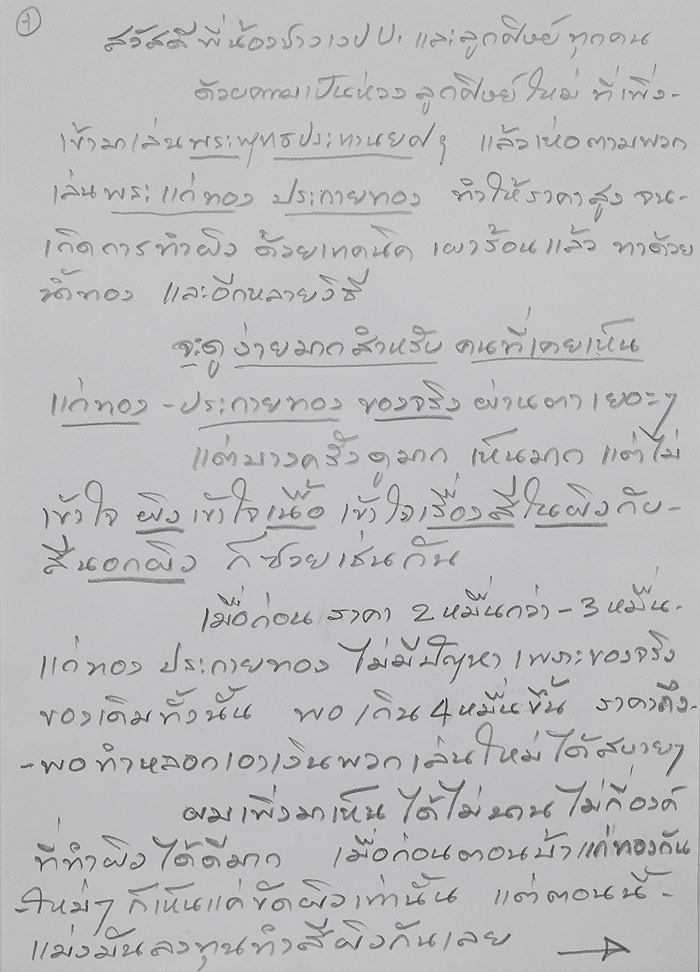 ①
สวัสดี พี่น้องชาวเวปปะ และลูกศิษย์ ทุกคน
ด้วยความเป็นห่วง ลูกศิษย์ใหม่ ที่เพิ่ง-
เข้ามาเล่นพระพุทธประทานยศๆ แล้วเห่อตามพวก
เล่นพระ แก่ทอง ประกายทอง ทำให้ราคาสูง จน-
เกิดการทำผิว ด้วยเทคนิค เผาร้อนแล้ว ทาด้วย
น้ำทอง และอีกหลายวิธี
จะดู ง่ายมากสำหรับ คนที่เคยเห็น
แก่ทอง - ประกายทอง ของจริง ผ่านตาเยอะๆ
แต่บางครั้งดูมาก เห็นมาก แต่ไม่
เข้าใจ ผิว เข้าใจเนื้อ เข้าใจเรื่องสีในผิว กับ-
สีนอกผิว ก็ซวยเช่นกัน
เมื่อก่อน ราคา 2 หมื่นกว่า - 3 หมื่น-
แก่ทอง ประกายทอง ไม่มีปัญหา เพราะของจริง
ของเดิมทั้งนั้น พอเกิน 4 หมื่นขึ้น ราคาถึง-
-พอทำหลอกเอาเงินพวกเล่นใหม่ ได้สบายๆ
ผมเพิ่งมาเห็น ได้ไม่นาน ไม่กี่องค์
ที่ทำผิวได้ดีมาก เมื่อก่อนตอนบ้าแก่ทองกัน
-ใหม่ๆ ก็เห็นแค่ขัดผิวเท่านั้น แต่ตอนนี้-
แม่งมันลงทุนทำสีผิวกันเลย →